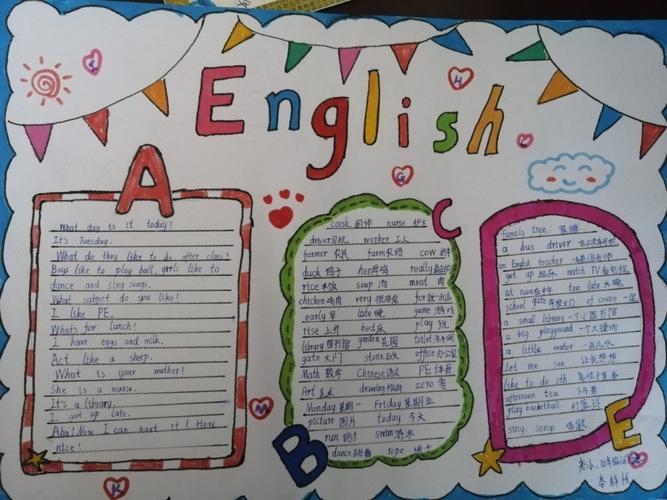 English
A
What day is it today?
It's Tuesday.
What do they like to do after class?
Boys like to play ball, girls like to
dance and sing songs.
What subject do you like?
I like PE.
Whats for lunch!
I have eggs and milk.
Act like a sheep.
What is your mother!
She is a nurse.
It's a library.
I get up late.
Aha! Now I can hart it! How
nice!
C
cook 厨师 nurse 护士
driver 司机 worker 工人
farmer 农民 farm 农场 cow 奶牛
duck 鸭子 hen 母鸡 really
rice 米饭 soup 汤 meat 肉
chicken 鸡肉 very for
early 早 late 晚 game 游戏
rise 上升 bud play 玩
library 图书馆 garden 花园 toilet
gate 大门 office 办公室
Math 数学 Chinese 语文 PE 体育
Art zero 零
Monday 星期一 Friday 星期五
picture 图片 today 今天
run swim 游泳
dance 跳舞 rope
B
family tree
a bus driver
an English teacher
get up 起床 watch TV 看电视
at noon too late
school gate of course
a small library 一个小图书馆
a big playground 一个大操场
a little water
Let me see
like to do sth
afternoon tea
play basketball
sing songs
E